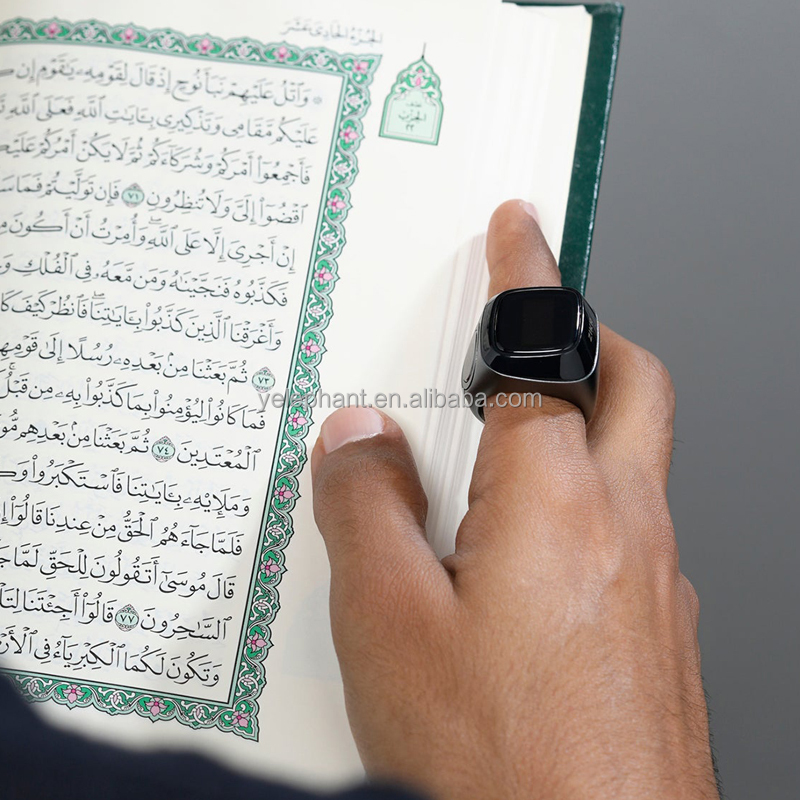 الجُزْءُ الحَادِي عَشَرَ
نصف
الحزب
٢٢
۞ وَٱتْلُ عَلَيْهِمْ نَبَأَ نُوحٍ إِذْ قَالَ لِقَوْمِهِۦ يَٰقَوْمِ إِن
عَلَيْكُم مَّقَامِى وَتَذْكِيرِى بِـَٔايَٰتِ ٱللَّهِ فَعَلَى ٱللَّهِ
فَأَجْمِعُوٓا۟ أَمْرَكُمْ وَشُرَكَآءَكُمْ ثُمَّ لَا يَكُنْ أَمْرُكُمْ
ٱقْضُوٓا۟ إِلَىَّ وَلَا تُنظِرُونِ ٧١ فَإِن تَوَلَّيْتُمْ فَمَا
إِنْ أَجْرِىَ إِلَّا عَلَى ٱللَّهِ ۖ وَأُمِرْتُ أَنْ أَكُونَ
فَكَذَّبُوهُ فَنَجَّيْنَٰهُ وَمَن مَّعَهُۥ فِى ٱلْفُلْكِ
وَأَغْرَقْنَا ٱلَّذِينَ كَذَّبُوا۟ بِـَٔايَٰتِنَا ۖ فَٱنظُرْ كَيْفَ
٧٣ ثُمَّ بَعَثْنَا مِنۢ بَعْدِهِۦ رُسُلًا إِلَىٰ قَوْمِهِ
فَمَا كَانُوا۟ لِيُؤْمِنُوا۟ بِمَا كَذَّبُوا۟ بِهِۦ مِن قَبْلُ ۚ
ٱلْمُعْتَدِينَ ٧٤ ثُمَّ بَعَثْنَا مِنۢ بَعْدِهِم
وَمَلَإِي۟هِۦ بِـَٔايَٰتِنَا فَٱسْتَكْبَرُوا۟
فَلَمَّا جَآءَهُمُ ٱلْحَقُّ مِنْ عِندِنَا قَالُوٓا۟
قَالَ مُوسَىٰٓ أَتَقُولُونَ لِلْحَقِّ لَمَّا
ٱلسَّٰحِرُونَ ٧٧ قَالُوٓا۟ أَجِئْتَنَا
وَتَكُونَ لَكُمَا ٱلْكِبْرِيَآءُ فِى
yelephant.en.alibaba.com